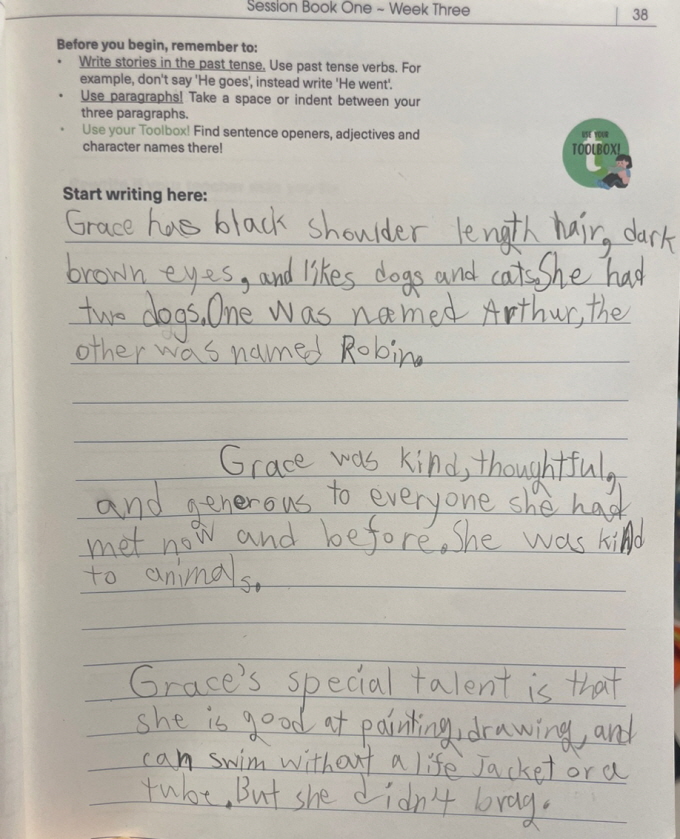 Session Book One ~ Week Three
38
Before you begin, remember to:
• Write stories in the past tense. Use past tense verbs. For
example, don't say 'He goes', instead write 'He went'.
• Use paragraphs! Take a space or indent between your
three paragraphs.
• Use your Toolbox! Find sentence openers, adjectives and
character names there!
USE YOUR
TOOLBOX!
t
Start writing here:
Grace has black shoulder length hair, dark
brown eyes, and likes dogs and cats. She had
two dogs. One was named Arthur, the
other was named Robin.
Grace was kind, thoughtful,
and generous to everyone she had
met now and before. She was kind
to animals.
Grace's special talent is that
she is good at painting, drawing, and
can swim without a life jacket or a
tube. But she didn't brag.